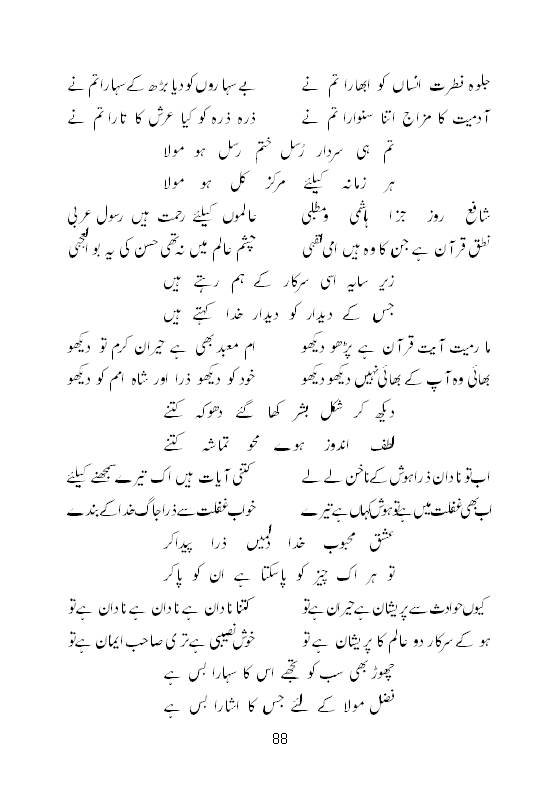 جلوہ فطرت انساں کو ابھارا تم نے بے سہاروں کو دیا بڑھ کے سہارا تم نے
آدمیت کا مزاج اتنا سنوارا تم نے ذرہ ذرہ کو کیا عرش کا تارا تم نے
تم ہی سردار رُسل ختم رسل ہو مولا
ہر زمانہ کیلئے مرکز کل ہو مولا
شافع روز جزا ہاشمی ومطلبی عالموں کیلئے رحمت ہیں رسول عربی
نطق قرآن ہے جن کا وہ ہیں امی لقبی چشم عالم میں نہ تھی حسن کی یہ بو العجبی
زیر سایہ اسی سرکار کے ہم رہتے ہیں
جس کے دیدار کو دیدار خدا کہتے ہیں
ما رمیت آیت قرآن ہے پڑھو دیکھو ام معبد بھی ہے حیران کرم تو دیکھو
بھائی وہ آپ کے بھائی نہیں دیکھو دیکھو خود کو دیکھو ذرا اور شاہ امم کو دیکھو
دیکھ کر شکل بشر کھا گئے دھوکہ کتنے
لطف اندوز ہوے محو تماشہ کتنے
اب تو نادان ذرا ہوش کے ناخن لے لے کتنی آیات ہیں اک تیرے سمجھنے کیلئے
اب بھی غفلت میں ہے تو ہوش کہاں ہے تیرے خواب غفلت سے ذرا جاگ خدا کے بندے
عشق محبوب خدا دل میں ذرا پیدا کر
تو ہر اک چیز کو پاسکتا ہے ان کو پا کر
کیوں حوادث سے پریشان ہے حیران ہے تو کتنا نادان ہے نادان ہے نادان ہے تو
ہو کے سرکار دو عالم کا پریشان ہے تو خوش نصیبی ہے تری صاحب ایمان ہے تو
چھوڑ بھی سب کو تجھے اس کا سہارا بس ہے
فضل مولا کے لئے جس کا اشارا بس ہے
88